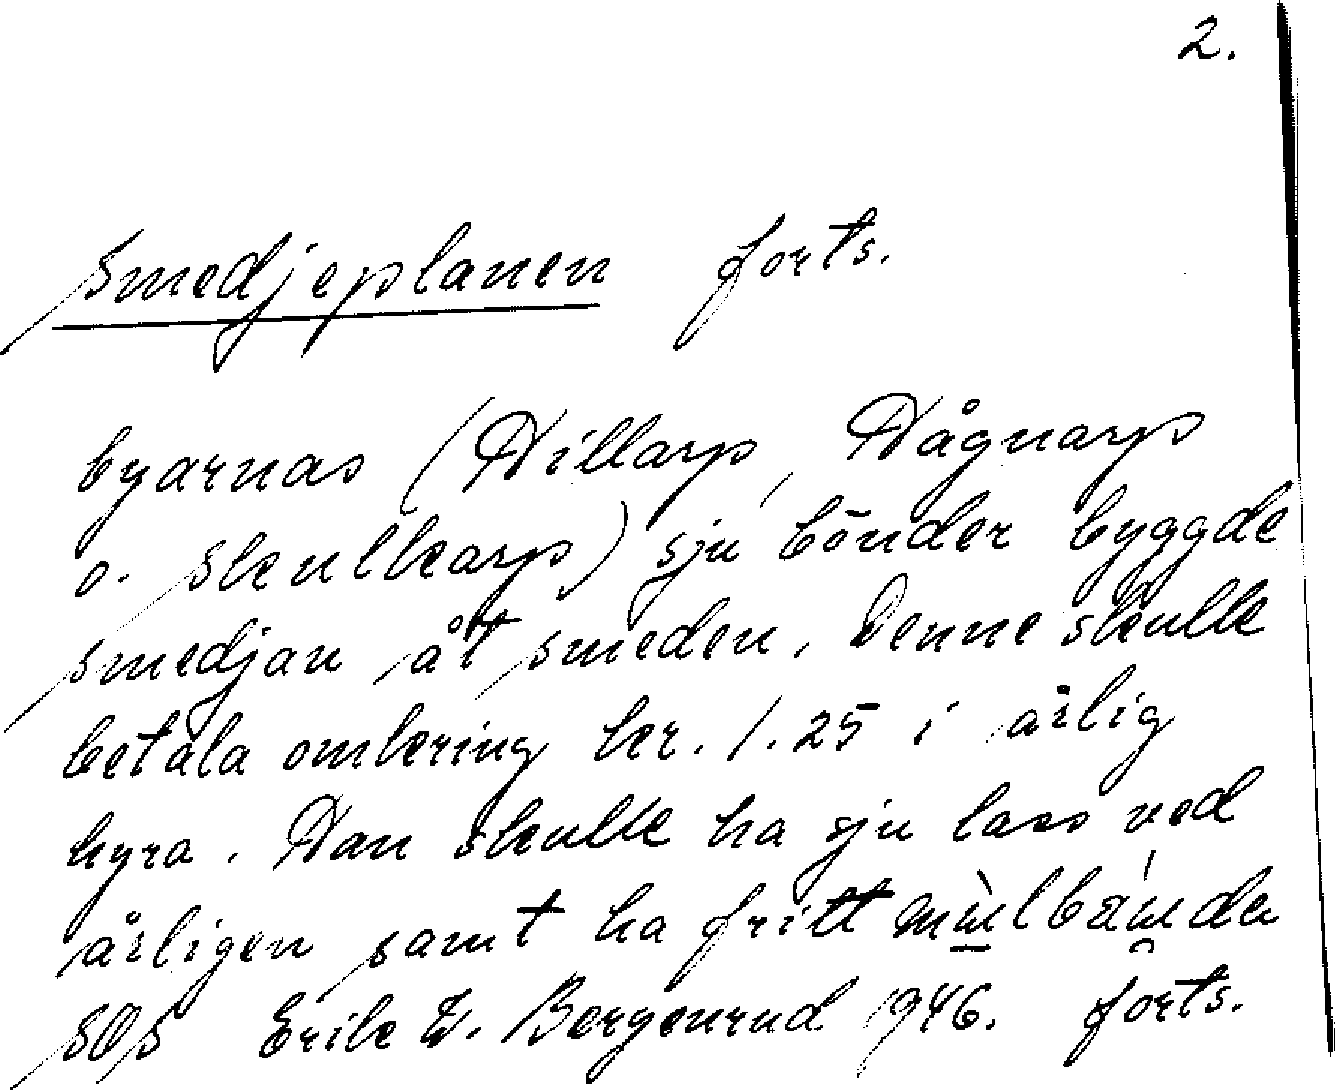 2.
Smedjeplanen forts.
byarnas (Hillarp, Hågnarp
o. Skulkarp) sju bönder byggde
smedjan åt smeden. Denne skulle
betala omkring kr. 1.25 i årlig
hyra. Han skulle ha sju lass ved
årligen samt ha fritt
SOS Erik W. Bergenrud 1946. forts.